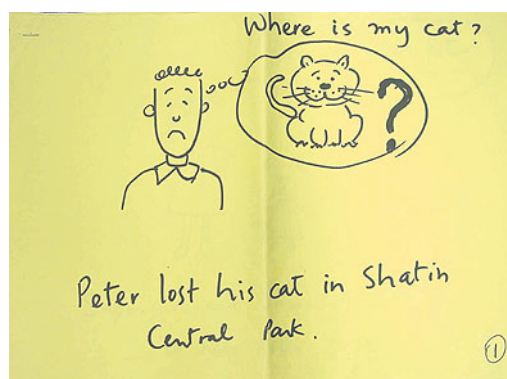 Where is my cat?
?
Peter lost his cat in Shatin
Central Park.
1